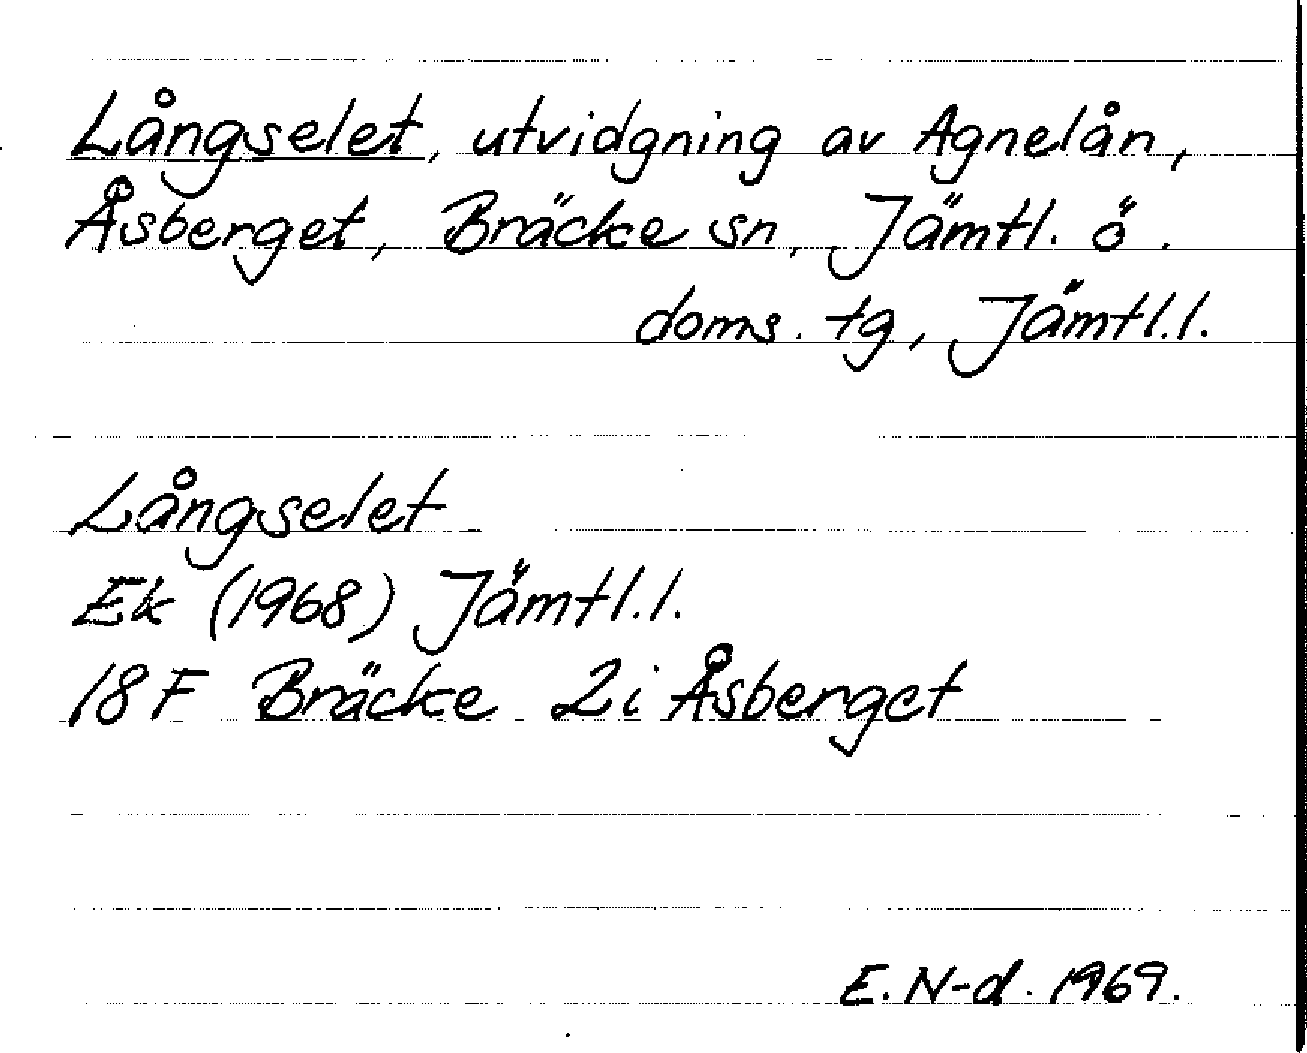 Långselet, utvidgning av Agnelån,
Åsberget, Bräcke sn, Jämtl. ö.
doms. tg, Jämtl.l.
Långselet
Ek (1968) Jämtl.l.
18F Bräcke 2i Åsberget
E. N-d. 1969.